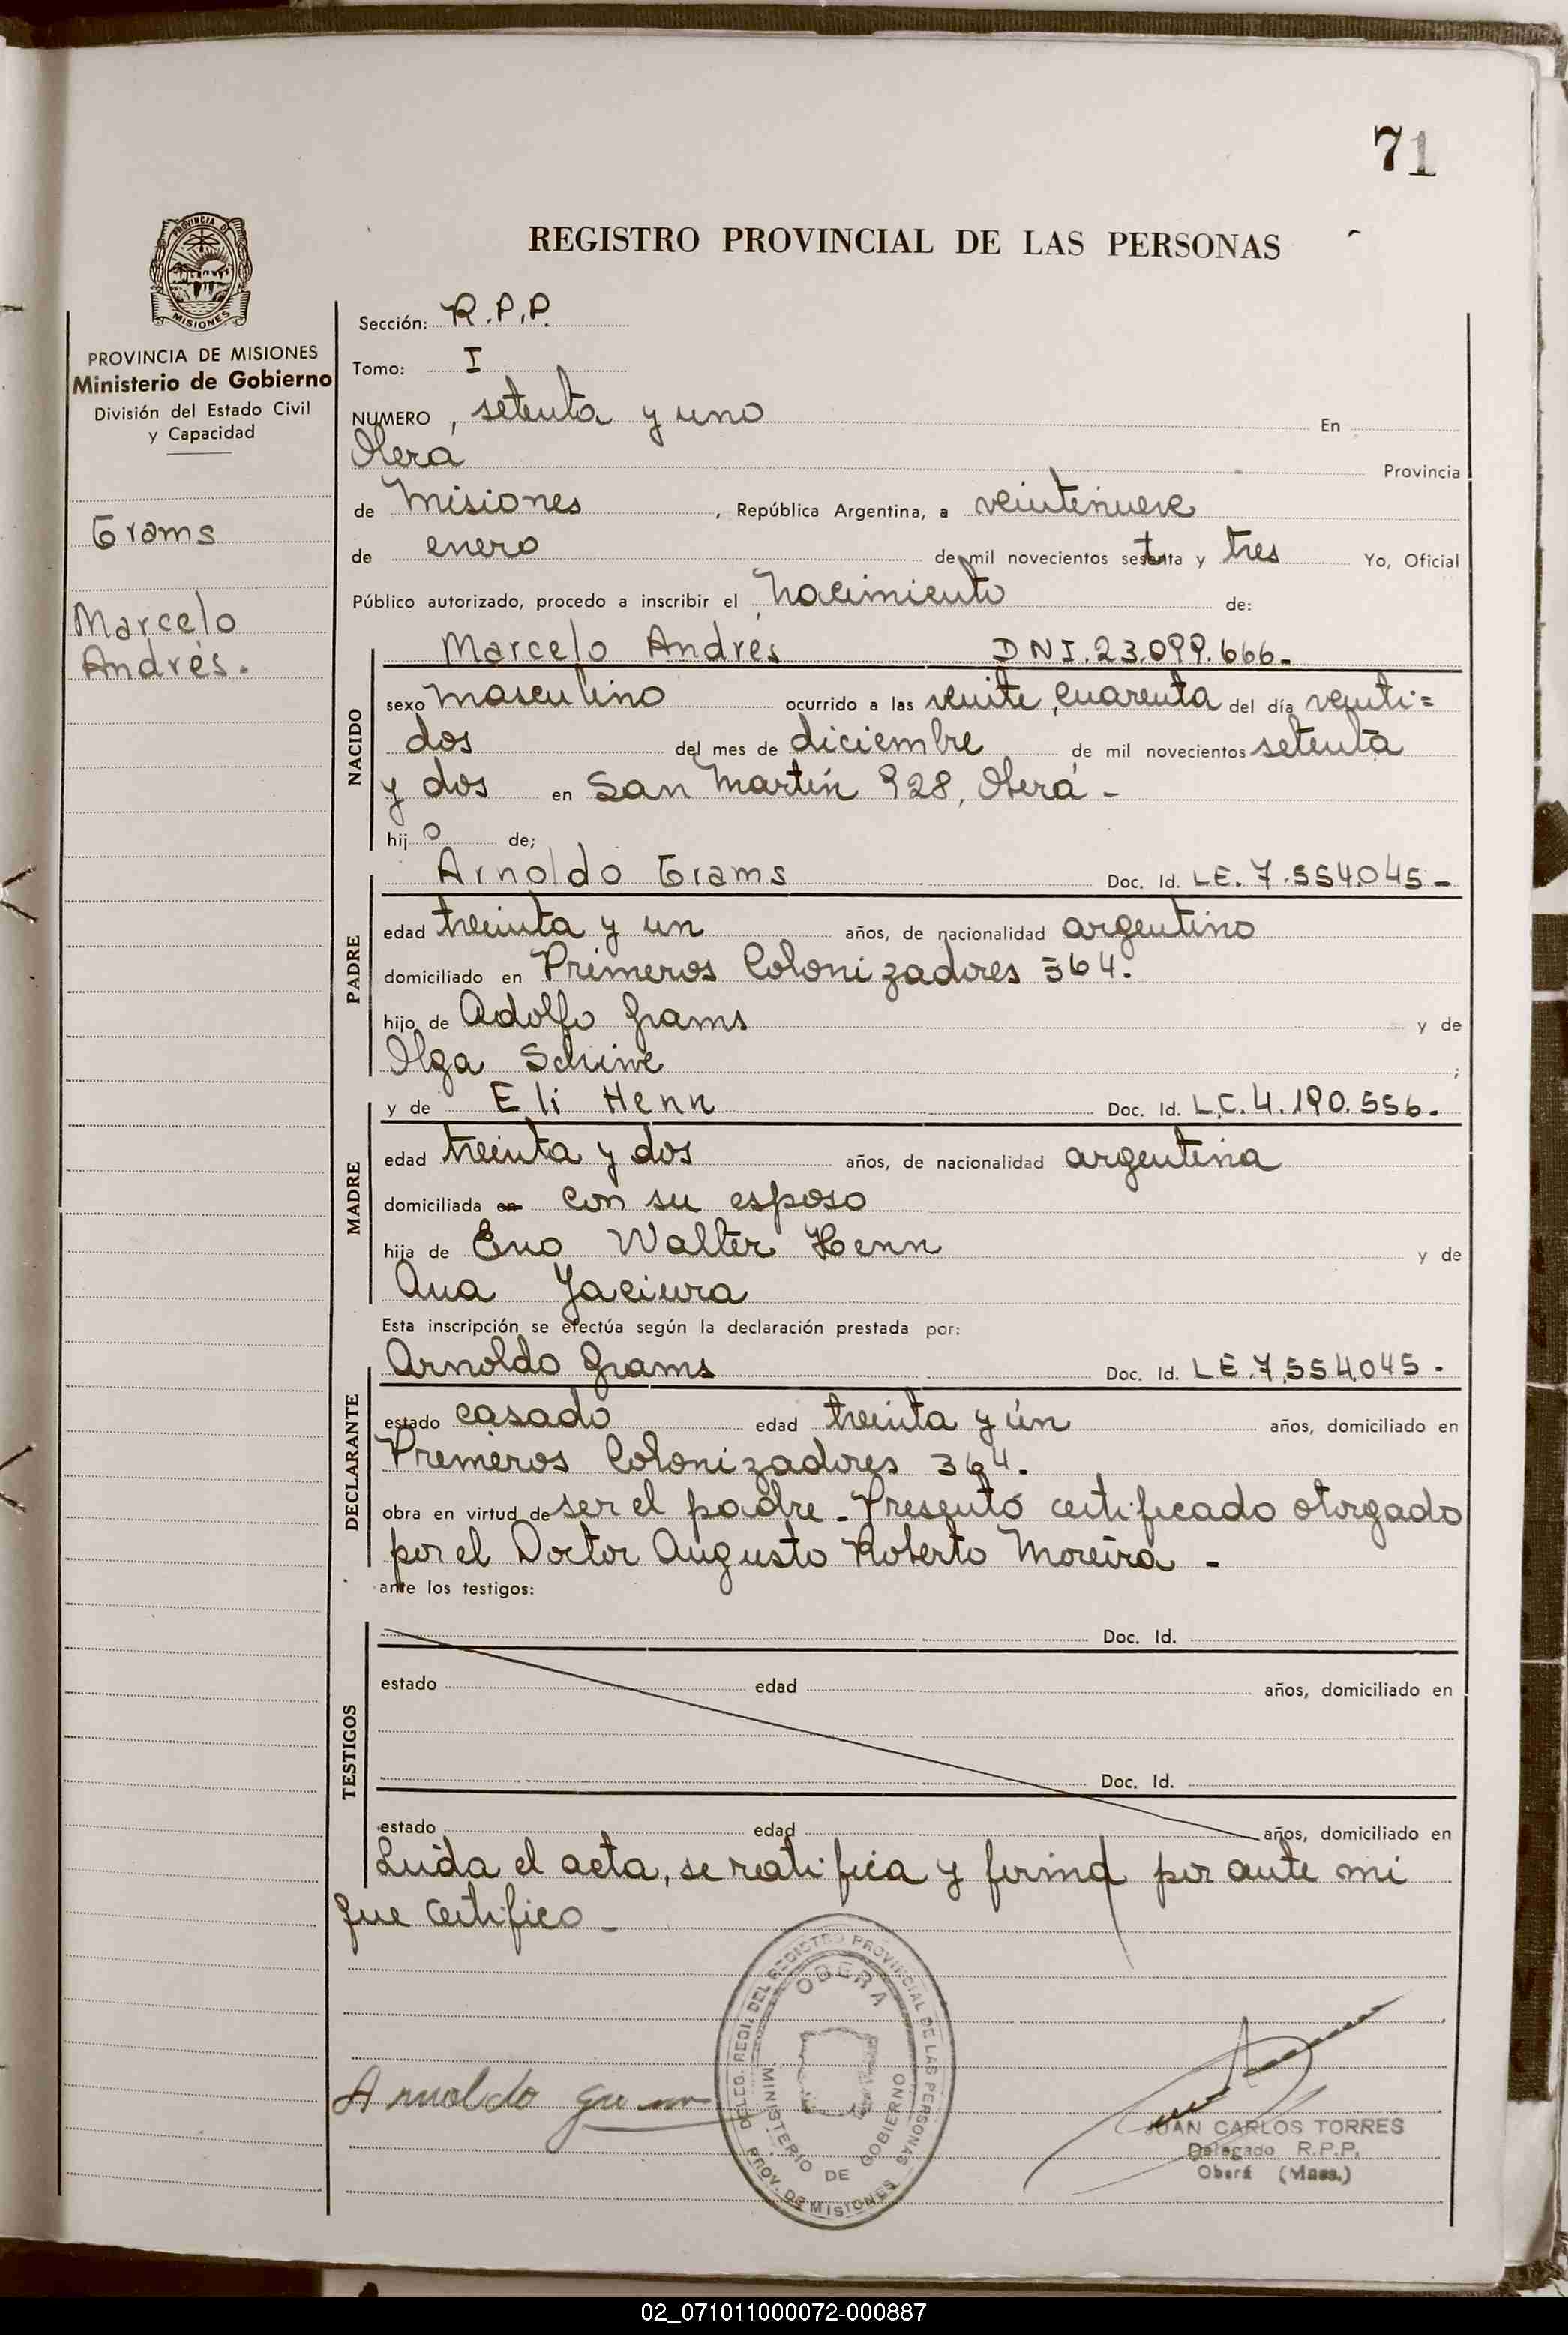 71
PROVINCIA DE
MISIONES
REGISTRO PROVINCIAL DE LAS PERSONAS
PROVINCIA DE MISIONES
Ministerio de Gobierno
División del Estado Civil
y Capacidad
Grams
Marcelo
Andrés.
Sección: R.P.P.
Tomo: I
NUMERO, setenta y uno En
Oberá Provincia
de Misiones, República Argentina, a veintinueve
de enero de mil novecientos setenta y tres Yo, Oficial
Público autorizado, procedo a inscribir el nacimiento de:
NACIDO
Marcelo Andrés DNI.23.099.666-
sexo masculino ocurrido a las veinte, cuarenta del día veinti=
dos del mes de diciembre de mil novecientos setenta
y dos en San Martín 928, Oberá -
hijo de;
PADRE
Arnoldo Grams Doc. Id. LE. 7.554.045-
edad treinta y un años, de nacionalidad argentino
domiciliado en Primeros Colonizadores 364.
hijo de Adolfo Grams y de
Olga ;
MADRE
y de Eli Henn Doc. Id. L.C. 4.190.556.
edad treinta y dos años, de nacionalidad argentina
domiciliada en con su esposo
hija de Eno Walter Henn y de
Ana
Esta inscripción se efectúa según la declaración prestada por:
DECLARANTE
Arnoldo Grams Doc. Id. LE.7,554.045-
estado casado edad treinta y ún años, domiciliado en
Premeros Colonizadores 364.
obra en virtud de ser el padre - Presentó certificado otorgado
por el Doctor Augusto Roberto Moreira -
ante los testigos:
TESTIGOS
Doc. Id.
estado edad años, domiciliado en
Doc. Id.
estado edad años, domiciliado en
Leída el acta, se ratifica y firma por ante mi
que certifico -
DEL REGISTRO PROVINCIAL DE LAS PERSONAS
OBERA
MINISTERIO DE GOBIERNO
PROV. DE MISIONES
Arnoldo Grams
JUAN CARLOS TORRES
Delegado R.P.P.
Oberá (Mnes.)
02_071011000072-000887